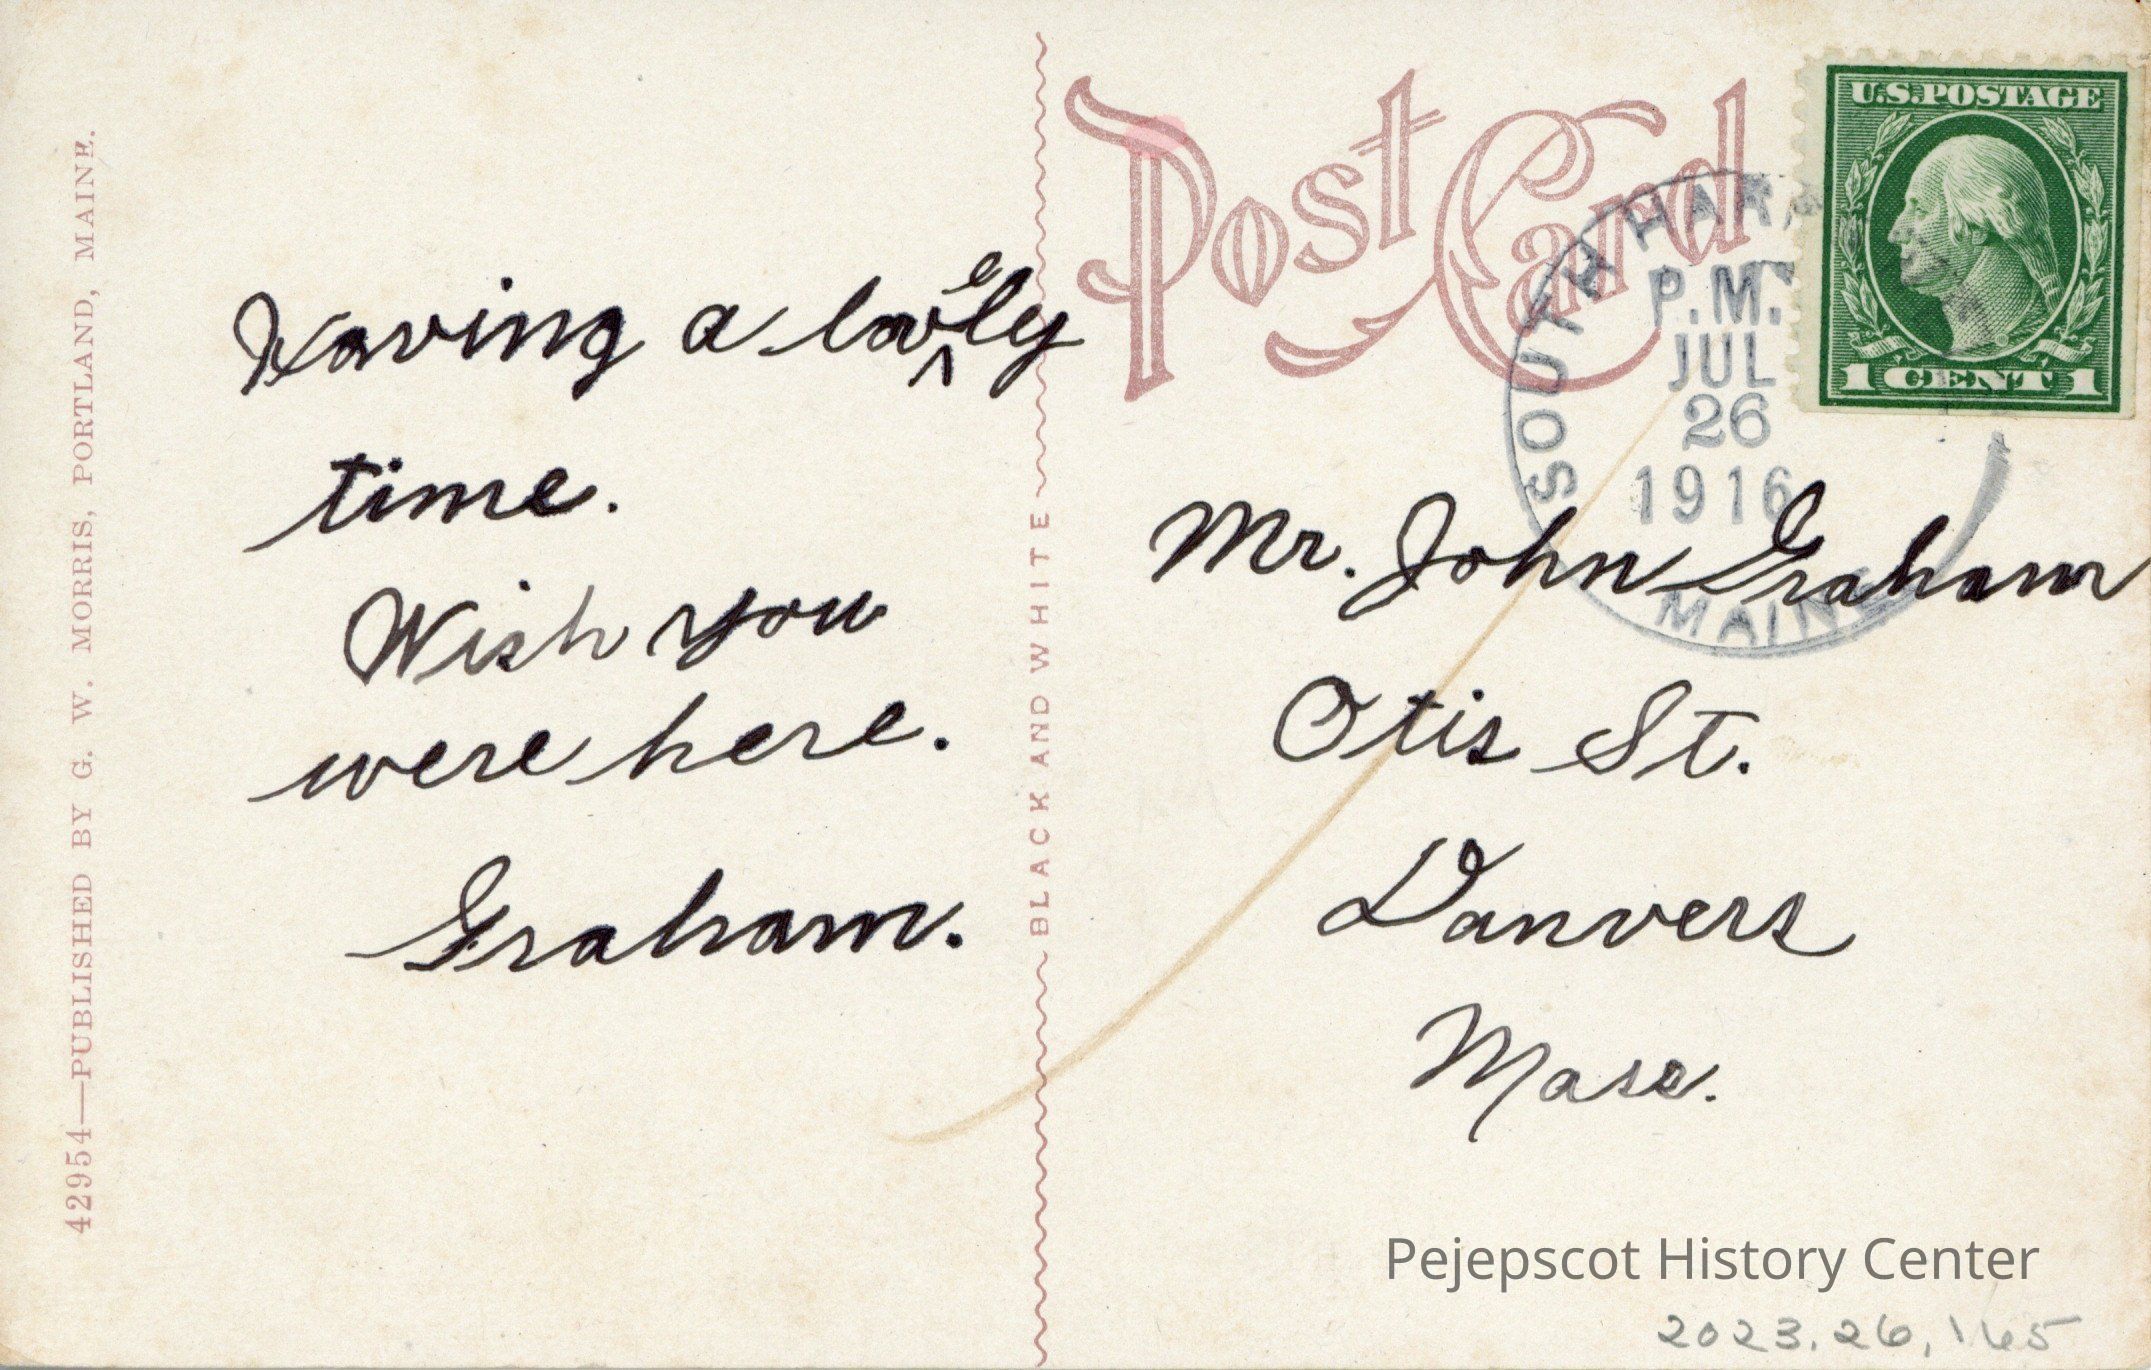 42954—PUBLISHED BY G. W. MORRIS, PORTLAND, MAINE.
Having a lovely
time.
Wish you
were here.
Graham.
BLACK AND WHITE
Post Card
U.S. POSTAGE
1 CENT 1
SOUTH HARP
P.M.
JUL
26
1916
MAINE
Mr. John Graham
Otis St.
Danvers
Mass.
Pejepscot History Center
2023.26.165